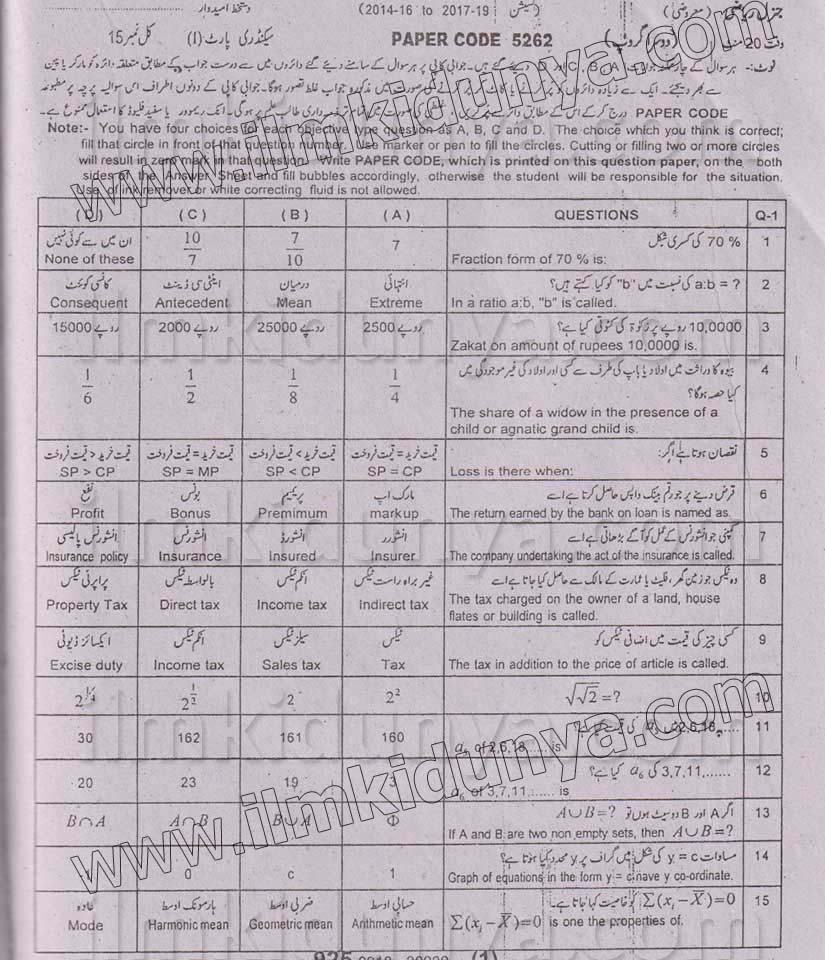 جنرل ریاضی (معروضی) سیشن (2014-16 to 2017-19) دستخط امیدوار
وقت 20 منٹ (دوسرا گروپ) PAPER CODE 5262 سیکنڈری پارٹ (I) کل نمبر 15
Note:- You have four choices for each objective type question as A, B, C and D. The choice which you think is correct;
fill that circle in front of that question number. Use marker or pen to fill the circles. Cutting or filling two or more circles
will result in zero mark in that question. Write PAPER CODE, which is printed on this question paper, on the both
sides of the Answer Sheet and fill bubbles accordingly, otherwise the student will be responsible for the situation.
Use of ink remover or white correcting fluid is not allowed.
( D ) ( C ) ( B ) ( A ) QUESTIONS Q-1
ان میں سے کوئی نہیں 70 % کی کسری شکل 1
None of these 10/7 7/10 7 Fraction form of 70 % is:
کانسی کوئنٹ اینٹی سی ڈینٹ درمیان انتہائی a:b = ? کی نسبت میں "b" کو کیا کہتے ہیں؟ 2
Consequent Antecedent Mean Extreme In a ratio a:b, "b" is called.
15000 روپے 2000 روپے 25000 روپے 2500 روپے 10,0000 روپے پر زکوٰة کی کٹوتی کیا ہے؟ 3
Zakat on amount of rupees 10,0000 is.
بیوہ کا وراثت میں اولاد یا باپ کی طرف سے کسی اور اولاد کی غیر موجودگی میں 4
کیا حصہ ہوگا؟
1/6 1/2 1/8 1/4 The share of a widow in the presence of a
child or agnatic grand child is.
قیمت خرید > قیمت فروخت قیمت خرید = قیمت فروخت قیمت خرید < قیمت فروخت قیمت خرید = قیمت فروخت نقصان ہوتا ہے اگر: 5
SP > CP SP = MP SP < CP SP = CP Loss is there when:
نفع بونس پریمیم مارک اپ قرض دینے پر جو رقم بینک واپس حاصل کرتا ہے اسے 6
Profit Bonus Premimum markup The return earned by the bank on loan is named as.
انشورنس پالیسی انشورنس انشورڈ انشورر کمپنی جو انشورنس کے عمل کو آگے بڑھاتی ہے اسے 7
Insurance policy Insurance Insured Insurer The company undertaking the act of the insurance is called.
پراپرٹی ٹیکس بالواسطہ ٹیکس انکم ٹیکس غیر براہ راست ٹیکس وہ ٹیکس جو زمین گھر، فلیٹ یا عمارت کے مالک سے حاصل کیا جاتا ہے اسے 8
Property Tax Direct tax Income tax Indirect tax The tax charged on the owner of a land, house
flates or building is called.
ایکسائز ڈیوٹی انکم ٹیکس سیلز ٹیکس ٹیکس کسی چیز کی قیمت میں اضافی ٹیکس کو 9
Excise duty Income tax Sales tax Tax The tax in addition to the price of article is called.
2^{1/4} 2^{1/2} 2 2² √√2 = ? 10
2,6,18,..... 11
30 162 161 160 of 2,6,18,..... is
3,7,11,...... کی a₆ کیا ہے؟ 12
20 23 19 3 a₆ of 3,7,11,...... is
اگر A اور B دو سیٹ ہوں تو A∪B = ? 13
B∩A A∩B B∪A Φ If A and B are two non empty sets, then A∪B = ?
مساوات y = c کی شکل میں گراف پر y محدد کیا ہوتا ہے؟ 14
0 c 1 Graph of equations in the form y = c nave y co-ordinate.
عادہ ہارمونک اوسط ضربی اوسط حسابی اوسط ∑(xᵢ – X̄)=0 کو خاصیت کہا جاتا ہے۔ 15
Mode Harmonic mean Geometric mean Arithmetic mean ∑(xᵢ – X̄)=0 is one the properties of.
(1)
www.ilmkidunya.com
www.ilmkidunya.com
ilmkidunya.com